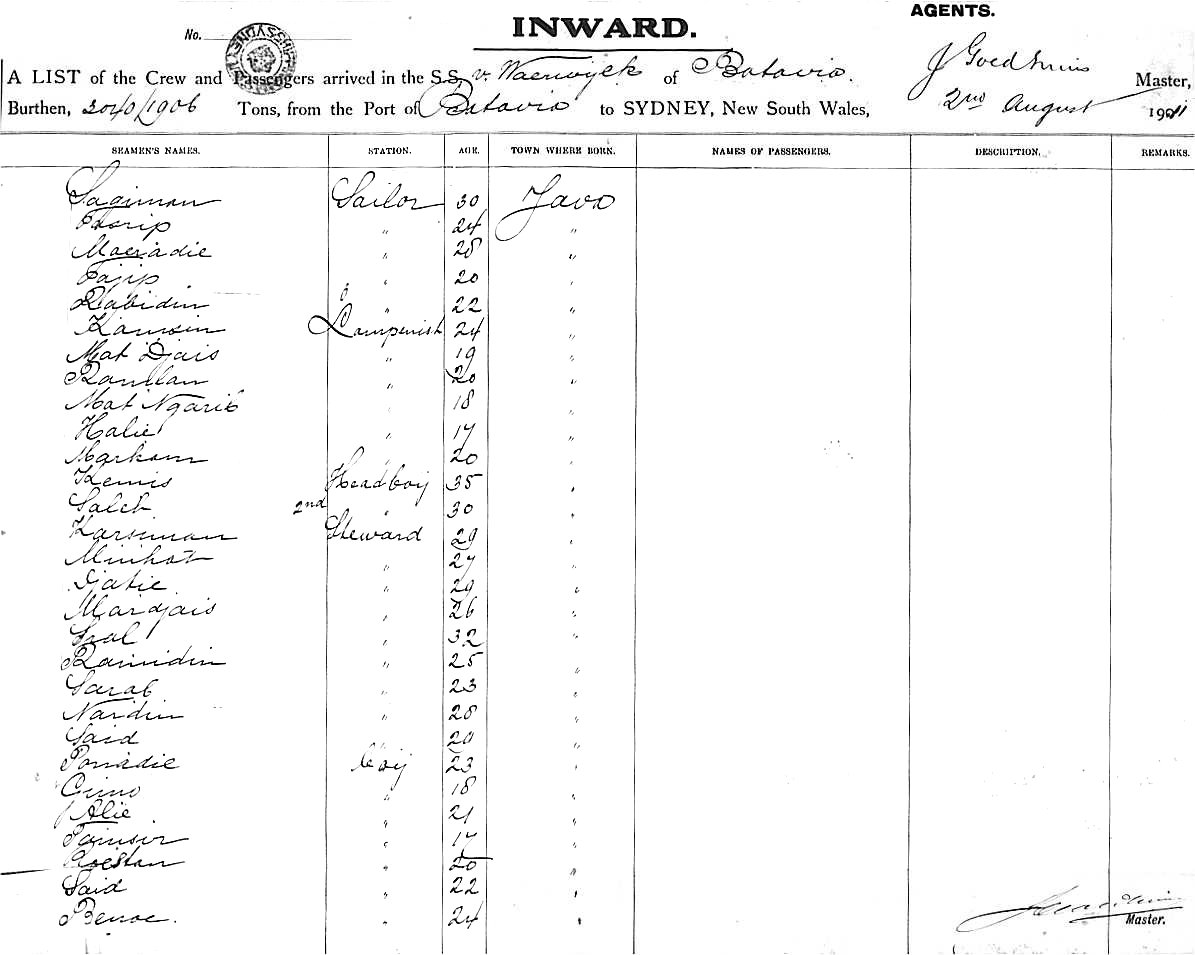 AGENTS.
No.
INWARD.
A LIST of the Crew and Passengers arrived in the S.S. v. Waerwijck of Batavia. J Goedhuis Master,
Burthen, 2040/1906 Tons, from the Port of Batavia to SYDNEY, New South Wales, 2nd August 1911
SEAMEN'S NAMES. STATION. AGE. TOWN WHERE BORN. NAMES OF PASSENGERS. DESCRIPTION. REMARKS.
Sagiman Sailor 30 Java
" 24 "
Moeradie " 28 "
Tajip " 20 "
Rabidin " 22 "
Kamsin Lampenist 24 "
Mat Djais " 19 "
Ramlan " 20 "
Mat Ngarib " 18 "
Halie " 17 "
Markam " 20 "
Kemis Headboy 35 "
Saleh 2nd " 30 "
Karsiman Steward 29 "
Minhat " 27 "
Djatie " 29 "
Mardjais " 26 "
" 32 "
Ramidin " 25 "
Sarab " 23 "
Nardin " 28 "
Said " 20 "
Ponadie boy 23 "
" 18 "
Alie " 21 "
" 17 "
Roestan " 20 "
Said " 22 "
Benoe. " 24 "
Master.